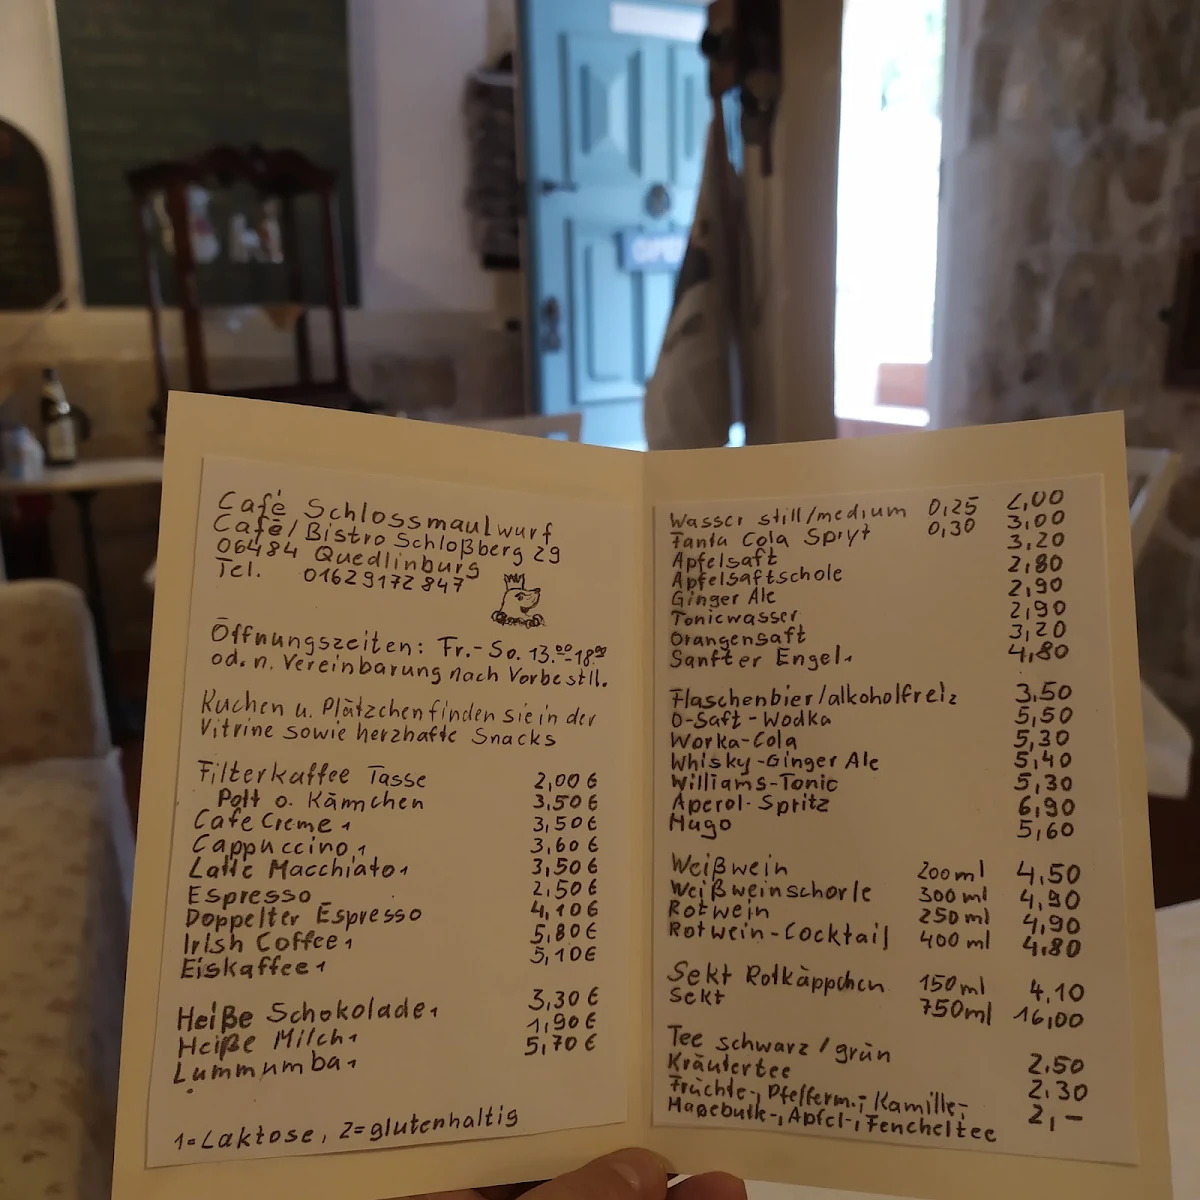 OPEN
Café Schlossmaulwurf
Café/Bistro Schloßberg 29
06484 Quedlinburg
Tel. 01629172847
Öffnungszeiten: Fr.-So. 13.00-18.00
od. n. Vereinbarung nach Vorbestll.
Kuchen u. Plätzchen finden sie in der
Vitrine sowie herzhafte Snacks
Filterkaffee Tasse 2,00 €
Pott o. Kännchen 3,50 €
Cafe Creme 1 3,50 €
Cappuccino 1 3,60 €
Latte Macchiato 1 3,50 €
Espresso 2,50 €
Doppelter Espresso 4,10 €
Irish Coffee 1 5,80 €
Eiskaffee 1 5,10 €
Heiße Schokolade 1 3,30 €
Heiße Milch 1 1,90 €
Lummumba 1 5,70 €
1=Laktose, 2=glutenhaltig
Wasser still/medium 0,25 2,00
Fanta Cola Spryt 0,30 3,00
Apfelsaft 3,20
Apfelsaftschole 2,80
Ginger Ale 2,90
Tonicwasser 2,90
Orangensaft 3,20
Sanfter Engel 1 4,80
Flaschenbier/alkoholfrei 2 3,50
O-Saft-Wodka 5,50
Worka-Cola 5,30
Whisky-Ginger Ale 5,40
Williams-Tonic 5,30
Aperol-Spritz 6,90
Hugo 5,60
Weißwein 200ml 4,50
Weißweinschorle 300ml 4,90
Rotwein 250ml 4,90
Rotwein-Cocktail 400ml 4.80
Sekt Rotkäppchen 150ml 4,10
Sekt 750ml 16,00
Tee schwarz/grün 2.50
Kräutertee 2.30
Früchte-, Pfefferm.-, Kamille-, 2,-
Hagebutte-, Apfel-, Fencheltee